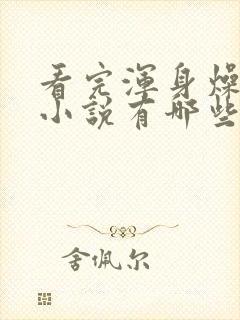 看完渾身燥
小說有哪些
舍佩尔